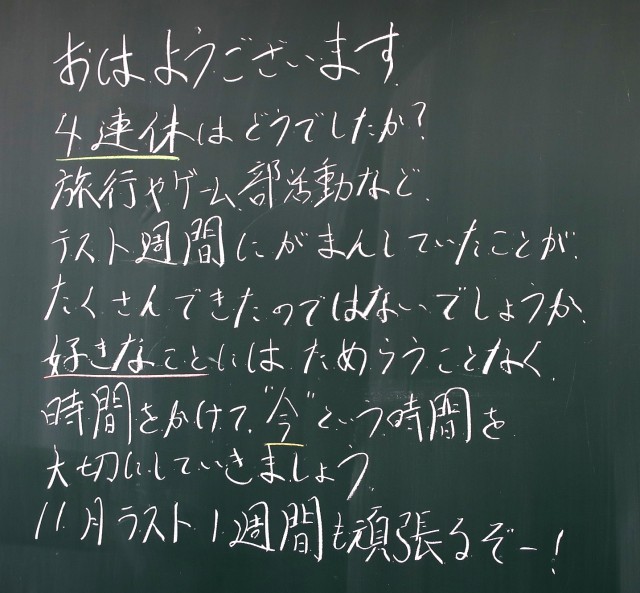 おはようございます
4連休はどうでしたか?
旅行やゲーム、部活動など、
テスト週間にがまんしていたことが、
たくさんできたのではないでしょうか。
好きなことにはためらうことなく、
時間をかけて、"今"という時間を
大切にしていきましょう。
11月ラスト1週間も頑張るぞー!